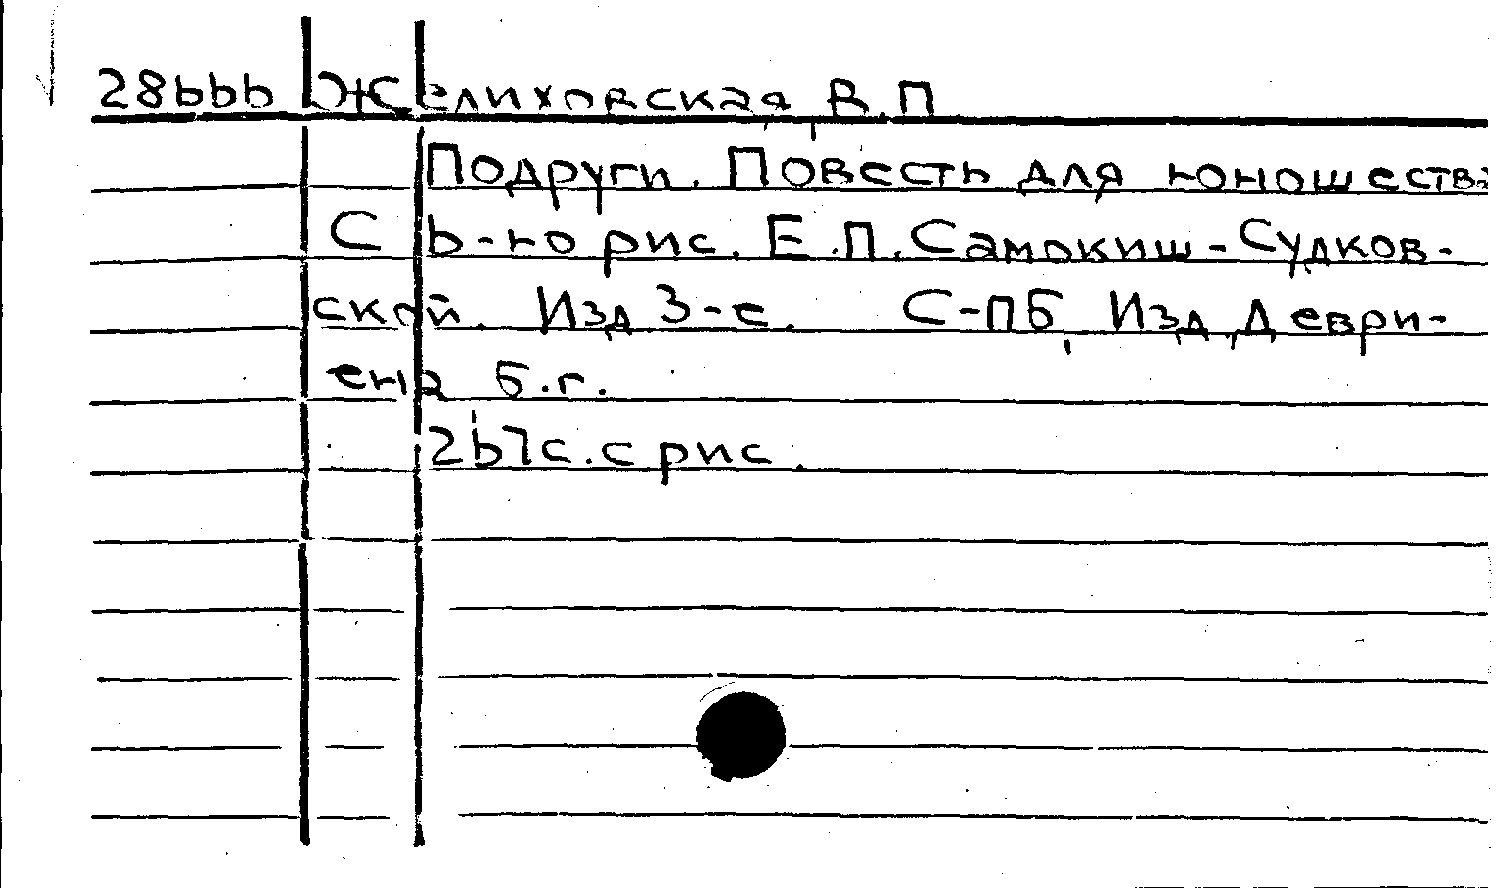 28666 Желиховская, В.П.
Подруги. Повесть для юношества
С 6-ю рис. Е.П. Самокиш-Судков-
ской. Изд 3-е. С-ПБ, Изд. Деври-
ена б.г.
267с. с рис.